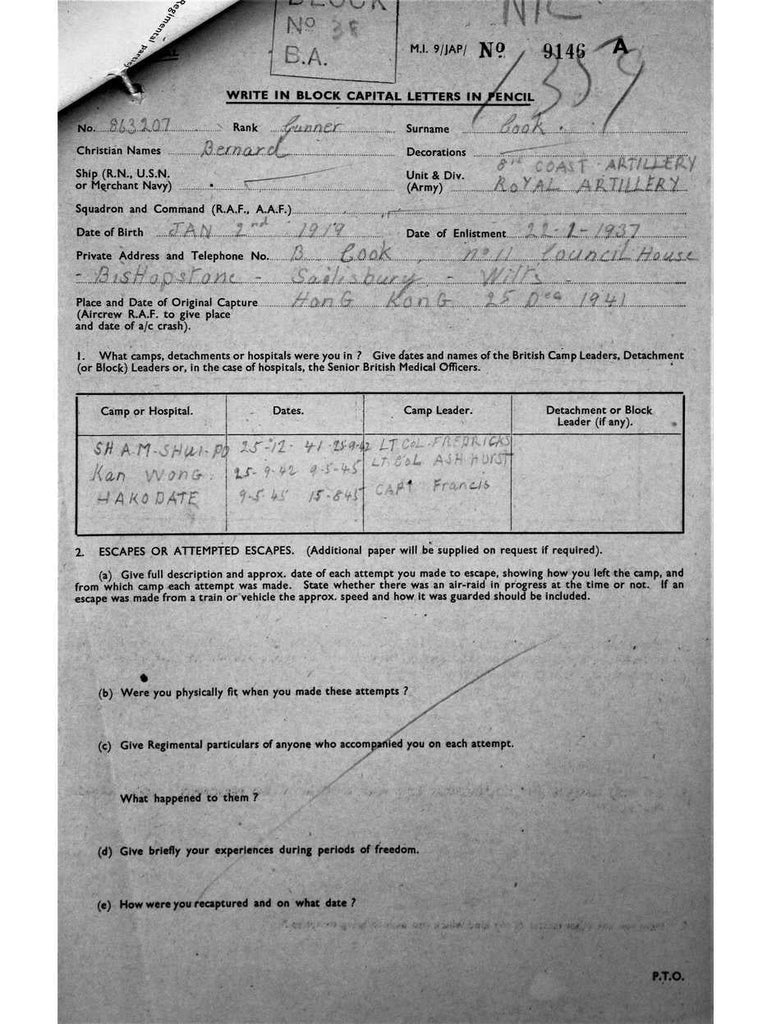 Regimental particu
BLOCK
Nº 38
B.A.
NIL
M.I. 9/JAP/ Nº 9146 A
1359
WRITE IN BLOCK CAPITAL LETTERS IN PENCIL
No. 863207 Rank Gunner Surname Cook.
Christian Names Bernard Decorations
Ship (R.N., U.S.N. or Merchant Navy) Unit & Div. (Army) 8th COAST ARTILLERY
ROYAL ARTILLERY
Squadron and Command (R.A.F., A.A.F.)
Date of Birth JAN 2nd 1919 Date of Enlistment 22-1-1937
Private Address and Telephone No. B Cook, No 11 Council House
- BisHopstone - Sailisbury - Wilts -
Place and Date of Original Capture HonG KonG 25 Dec 1941
(Aircrew R.A.F. to give place
and date of a/c crash).
1. What camps, detachments or hospitals were you in ? Give dates and names of the British Camp Leaders, Detachment
(or Block) Leaders or, in the case of hospitals, the Senior British Medical Officers.
Camp or Hospital. Dates. Camp Leader. Detachment or Block Leader (if any).
SHAM-SHUI-PO 25-12-41-25-9-42 LT COL FREDRICKS
Kan Wong. 25-9-42 9-5-45 LT COL ASHHURST
HAKODATE 9-5-45 15-845 CAPT Francis
2. ESCAPES OR ATTEMPTED ESCAPES. (Additional paper will be supplied on request if required).
(a) Give full description and approx. date of each attempt you made to escape, showing how you left the camp, and
from which camp each attempt was made. State whether there was an air-raid in progress at the time or not. If an
escape was made from a train or vehicle the approx. speed and how it was guarded should be included.
(b) Were you physically fit when you made these attempts ?
(c) Give Regimental particulars of anyone who accompanied you on each attempt.
What happened to them ?
(d) Give briefly your experiences during periods of freedom.
(e) How were you recaptured and on what date ?
P.T.O.